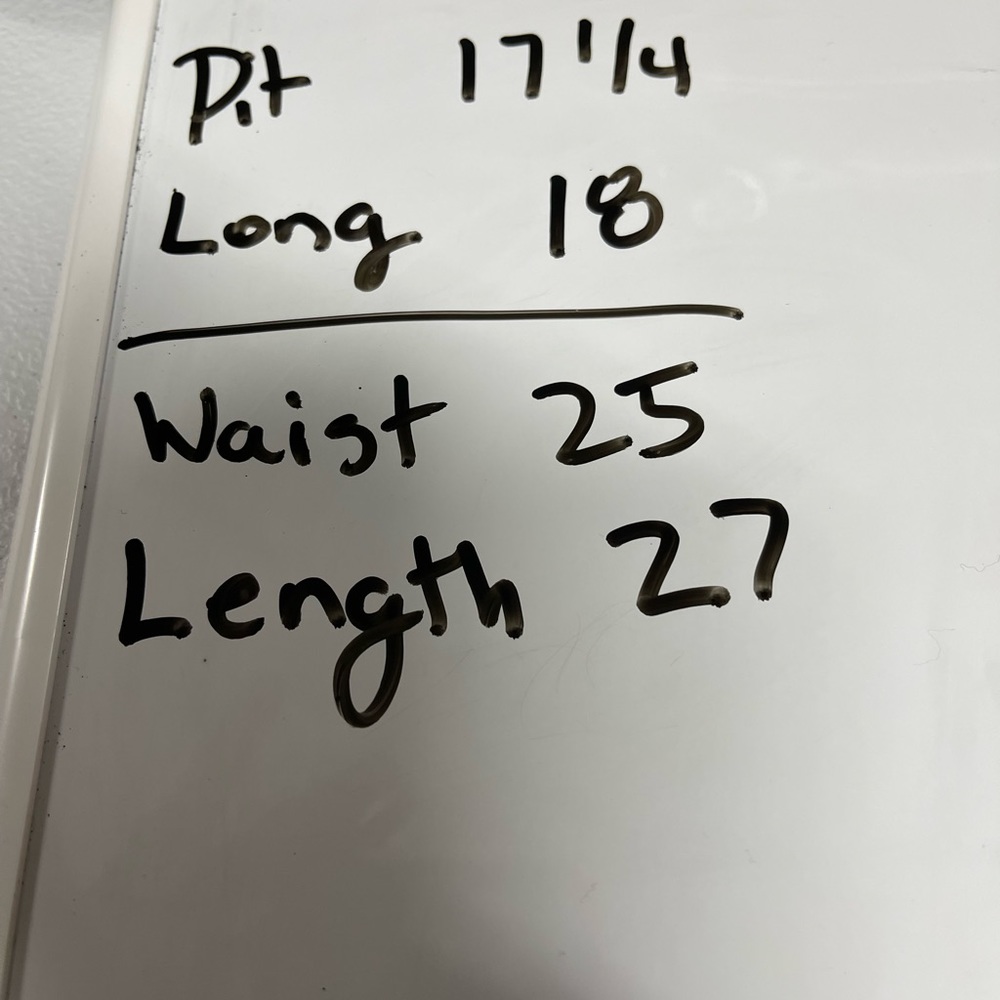 Pit 17 1/4
Long 18
Waist 25
Length 27